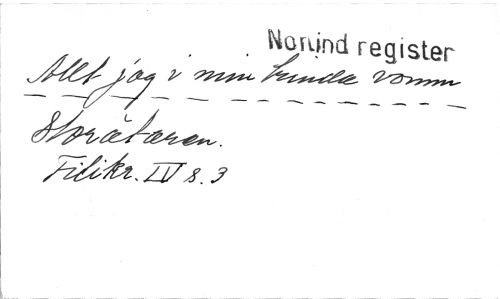 Norlind register
Allt jag i min runda vomm
Storätaren.
Filikr. IV s. 3